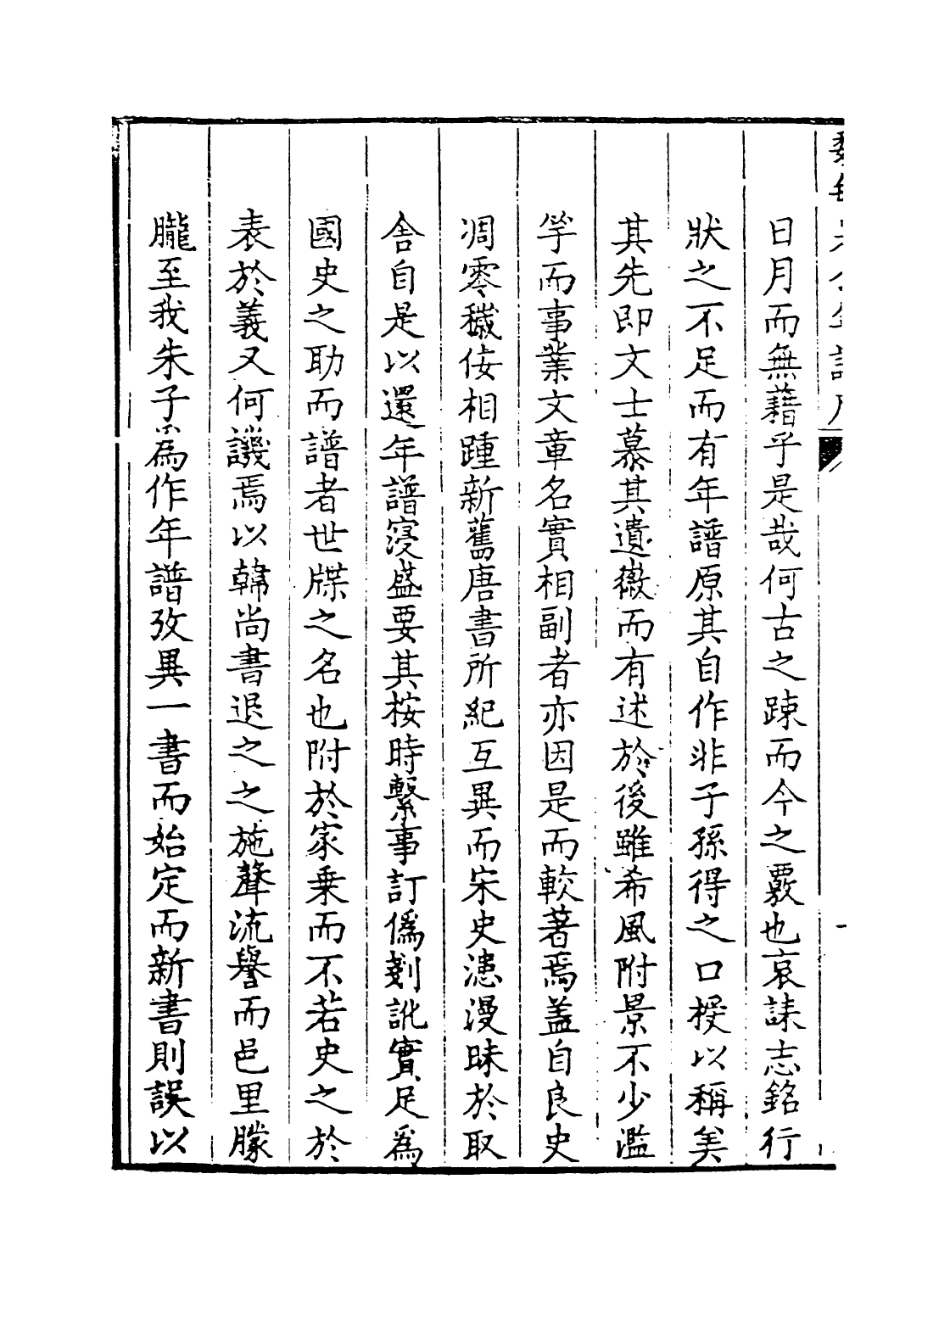 日月而無藉乎是哉何古之踈而今之覈也哀誄志銘行
狀之不足而有年譜原其自作非子孫得之口授以稱美
其先即文士慕其遺徽而有述於後雖希風附景不少濫
竽而事業文章名實相副者亦因是而較著焉蓋自良史
凋零穢佞相踵新舊唐書所紀互異而宋史漶漫昧於取
舍自是以還年譜寖盛要其按時繫事訂僞刬訛實足爲
國史之助而譜者世牒之名也附於家乗而不若史之於
表於義又何譏焉以韓尚書退之之施聲流譽而邑里朦
朧至我朱子爲作年譜攷異一書而始定而新書則誤以